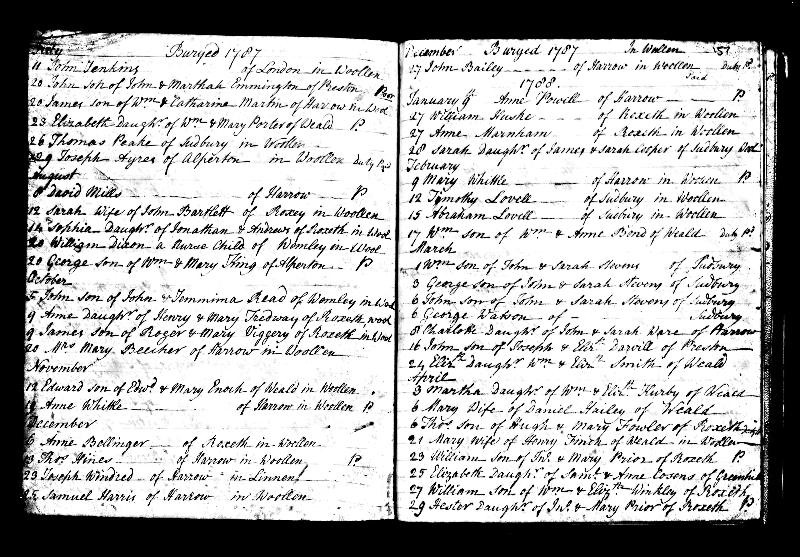 July Buryed 1787
11 John Jenkins of London in Woollen
20 John son of John & Marthah Ennington of Preston Poor
20 James son of Wm & Catharina Martin of Harrow in Wool
23 Elizabeth Daughr. of Wm & Mary Porter of Weald P
26 Thomas Peake of Sudbury in Woollen
29 Joseph Ayres of Alperton in Woollen Duty Pd
August
8 David Mills of Harrow P
12 Sarah Wife of John Bartlett of Roxey in Woollen
14 Sophia Daughr. of Jonathan & Andrews of Roxeth in Wool
20 William Dixon a Nurse Child of Wemley in Wool
20 George Son of Wm & Mary King of Alperton P
October
5 John son of John & Jemmima Read of Wemley in Wool
9 Anne Daughr. of Henry & Mary Tredway of Roxeth wool
9 James Son of Roger & Mary Viggery of Roxeth in Wool
20 Mrs Mary Beecher of Harrow in Woollen
November
12 Edward son of Edwd. & Mary Enoch of Weald in Woollen
Anne Whitle of Harrow in Woollen P
December
6 Anne Bollinger of Roxeth in Woollen
Thos. Hines of Harrow in Woollen P
23 Joseph Windred of Harrow in Linnen
25 Samuel Harris of Harrow in Woollen
December Buryed 1787 In Wollen 51
17 John Bailey of Harrow in Woollen Duty P
1788 Paid
January 9 Anne Powell of Harrow P
27 William Huske of Roxeth in Woollen
27 Anne Marnham of Roxeth in Woollen
28 Sarah Daughr. of James & Sarah Cosper of Sudbury Wool
February
9 Mary Whitle of Harrow in Woolen P
12 Tymothy Lovell of Sudbury in Woollen
15 Abraham Lovell of Sudbury in Woollen
17 Wm son of Wm & Anne Bond of Weald Duty Pd.
March
1 Wm son of John & Sarah Stevens of Sudbury
3 George son of John & Sarah Stevens of Sudbury
6 John son of John & Sarah Stevens of Sudbury
6 George Watson of Sudbury
8 Charlott Daughr. of John & Sarah Ware of Harrow
16 John Son of Joseph & Eliz. Darvill of Preston
24 Elizth Daughr. Wm & Elizth Smith of Weald
April
3 Martha Daughr. of Wm & Elizth Kurby of Weald
6 Mary Wife of Daniel Hailey of Weald
6 Thos. Son of Hugh & Mary Fowler of Roxeth
21 Mary Wife of Henry Finch of Weald in Woollen
23 William Son of Jno. & Mary Prior of Roxeth P
25 Elizabeth Daughr. of Saml. & Anne Cosens of Greenhill
27 William Son of Wm & Elizth Winkley of Roxeth
29 Hester Daughr. of Jno. & Mary Prior of Roxeth P